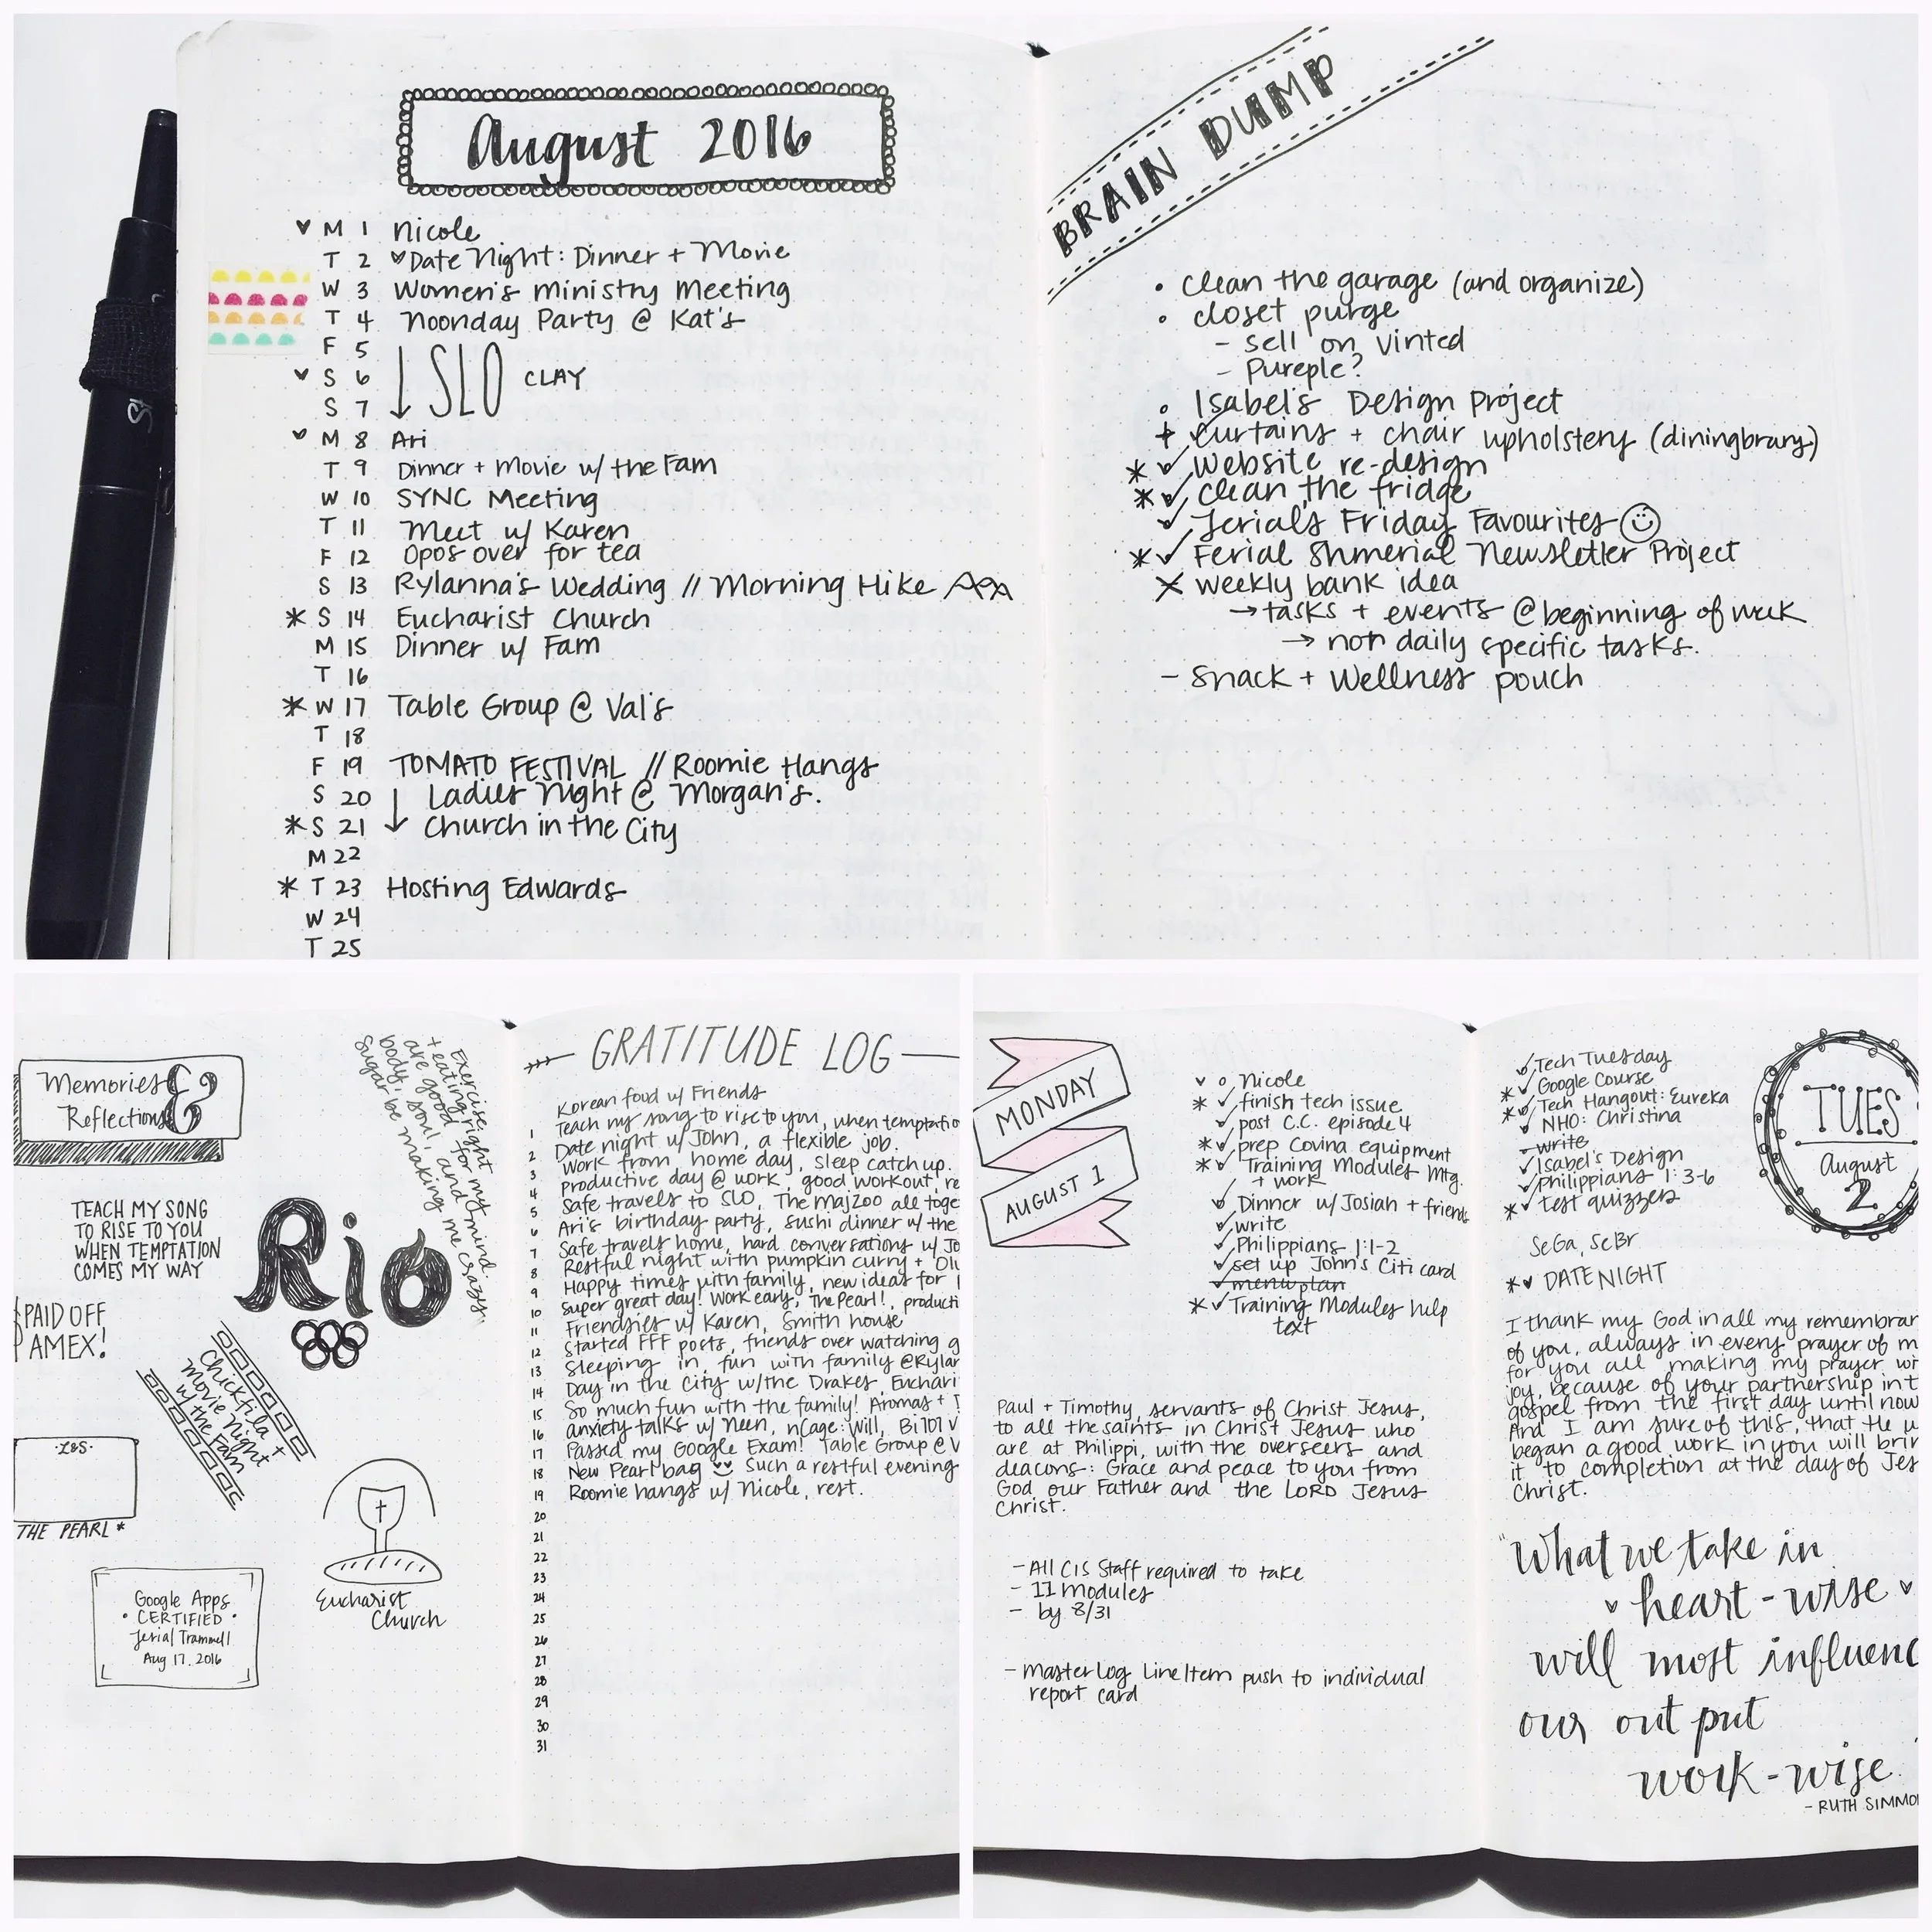 August 2016
♥ M 1 Nicole
T 2 ♥Date Night: Dinner + Movie
W 3 Women's Ministry Meeting
T 4 Noonday Party @ Kat's
F 5
♥ S 6 ↓ SLO CLAY
S 7
♥ M 8 Ari
T 9 Dinner + Movie w/ the Fam
W 10 SYNC Meeting
T 11 Meet w/ Karen
F 12 Opos over for tea
S 13 Rylanna's Wedding // Morning Hike
* S 14 Eucharist Church
M 15 Dinner w/ Fam
T 16
* W 17 Table Group @ Val's
T 18
F 19 TOMATO FESTIVAL // Roomie Hangs
S 20 Ladies Night @ Morgan's.
* S 21 ↓ Church in the City
M 22
* T 23 Hosting Edwards
W 24
T 25
BRAIN DUMP
• clean the garage (and organize)
• closet purge
- sell on vinted
- Pureple?
• Isabel's Design Project
+ ✓ curtains + chair upholstery (diningbrary)
* ✓ Website re-design
* ✓ clean the fridge
✓ Jerial's Friday Favourites ☺
* ✓ Ferial Shmerial Newsletter Project
X weekly bank idea
→ tasks + events @ beginning of week
→ non daily specific tasks.
- Snack + Wellness pouch
Memories &
Reflections
Exercise
+ eating right
are good for my
body, soul, and mind.
sugar be making me crazy.
TEACH MY SONG
TO RISE TO YOU
WHEN TEMPTATION
COMES MY WAY
Rio
PAID OFF
AMEX!
Chickfila +
Movie Night
w/ the Fam
·L&S·
THE PEARL *
Google Apps
• CERTIFIED •
Jerial Trammell
Aug 17. 2016
Eucharist
Church
GRATITUDE LOG
Korean food w/ Friends
1 Teach my song to rise to you, when temptatio
2 Date night w/ John, a flexible job.
3 Work from home day, sleep catch up.
4 productive day @ work, good workout, re
5 Safe travels to SLO, The Majzoo all toge
6 Ari's birthday party, sushi dinner w/ the
7 Safe travels home, hard conversations w/ Jo
8 Restful night with pumpkin curry + Oli
9 Happy times with family, new ideas for
10 Super great day! Work early, The Pearl!, producti
11 Friendsies w/ Karen, Smith house
12 Started FFF posts, friends over watching g
13 Sleeping in, fun with family @Rylar
14 Day in the City w/the Drakes, Euchari
15 So much fun with the family! Aromas +
16 anxiety talks w/ Neen, nCage: Will, Bi101 v
17 Passed my Google Exam! Table Group @ V
18 New Pearl bag Such a restful evening
19 Roomie hangs w/ Nicole, rest.
20
21
22
23
24
25
26
27
28
29
30
31
MONDAY
AUGUST 1
♥ o Nicole
* ✓ finish tech issue
✓ post C.C. episode 4
* ✓ prep Covina equipment
* ✓ Training Modules Mtg.
+ work
✓ Dinner w/ Josiah + friends
✓ write
✓ Philippians 1:1-2
✓ set up John's Citi card
✓ menu plan
* ✓ Training Modules help
text
Paul + Timothy, servants of Christ Jesus,
to all the saints in Christ Jesus who
are at Philippi, with the overseers and
deacons: Grace and peace to you from
God our Father and the LORD Jesus
Christ.
- All CIS Staff required to take
- 11 modules
- by 8/31
- Master Log Line Item push to individual
report card
✓ Tech Tuesday
* ✓ Google Course
* ✓ Tech Hangout: Eureka
✓ NHO: Christina
- write
✓ Isabel's Design
✓ Philippians 1:3-6
* ✓ test quizzes
SeGa, SeBr
* ♥ DATE NIGHT
TUES
August
2
I thank my God in all my remembran
of you, always in every prayer of m
for you all making my prayer wi
joy, because of your partnership in t
gospel from the first day until now
And I am sure of this, that He w
began a good work in you will brin
it to completion at the day of Jes
Christ.
"What we take in
♥ heart-wise ♥
will most influenc
our out put
work-wise.
- RUTH SIMMO